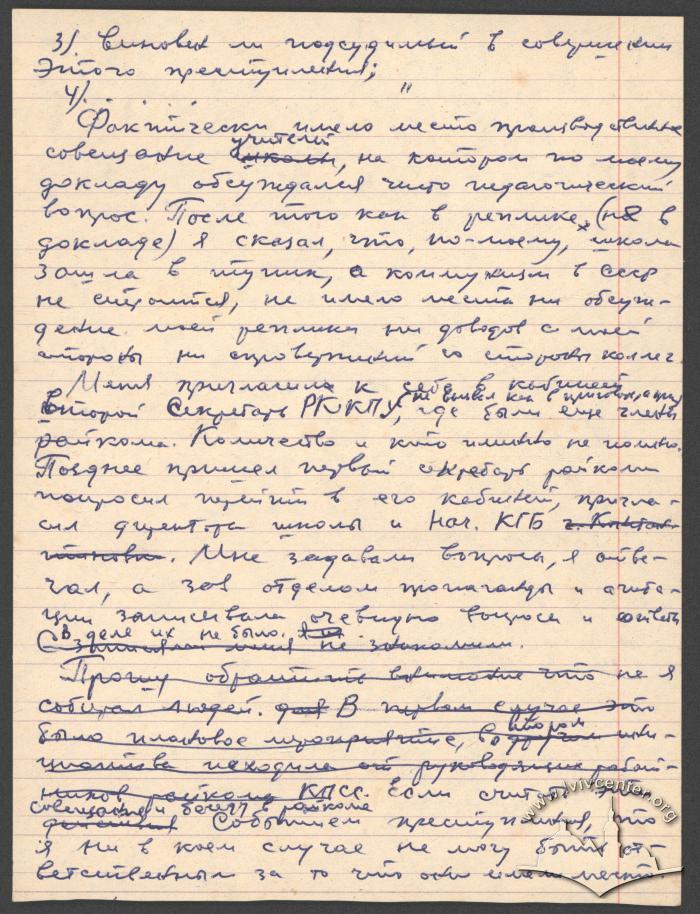 3). Виновен ли подсудимый в совершении
этого преступления;
4). " " "
Фактически имело место производственное
учителей
совещание школы, на котором по моему
докладу обсуждался чисто педагогический
вопрос. После того как в реплике (не в
докладе) я сказал, что, по-моему, школа
зашла в тупик, а коммунизм в СССР
не строится, не имело места ни обсуж-
дение моей реплики ни доводов с моей
стороны ни опровержений со стороны коллег.
Меня пригласили к себе в кабинет
второй секретарь РК КПУ, где были еще члены
райкома. Количество и кто именно не помню.
Позднее пришел первый секретарь райкома
попросил перейти в его кабинет, пригла-
сил директора школы и нач. КГБ
Мне задавали вопросы, я отве-
чал, а зав отделом пропаганды и агита-
ции записывала очевидно вопросы и ответы
В деле их не было.
С записями меня не знакомили.
Прошу обратить внимание что не я
собирал людей. для В первом случае это
втором
было плановое мероприятие, в другом ини-
циатива исходила от руководящих работ-
ников райкома КПСС. Если считать эти
совещание и беседу в райкоме
Событием преступления, то
я ни в коем случае не могу быть от-
ветственным за то что они имели место
www.lvivcenter.org